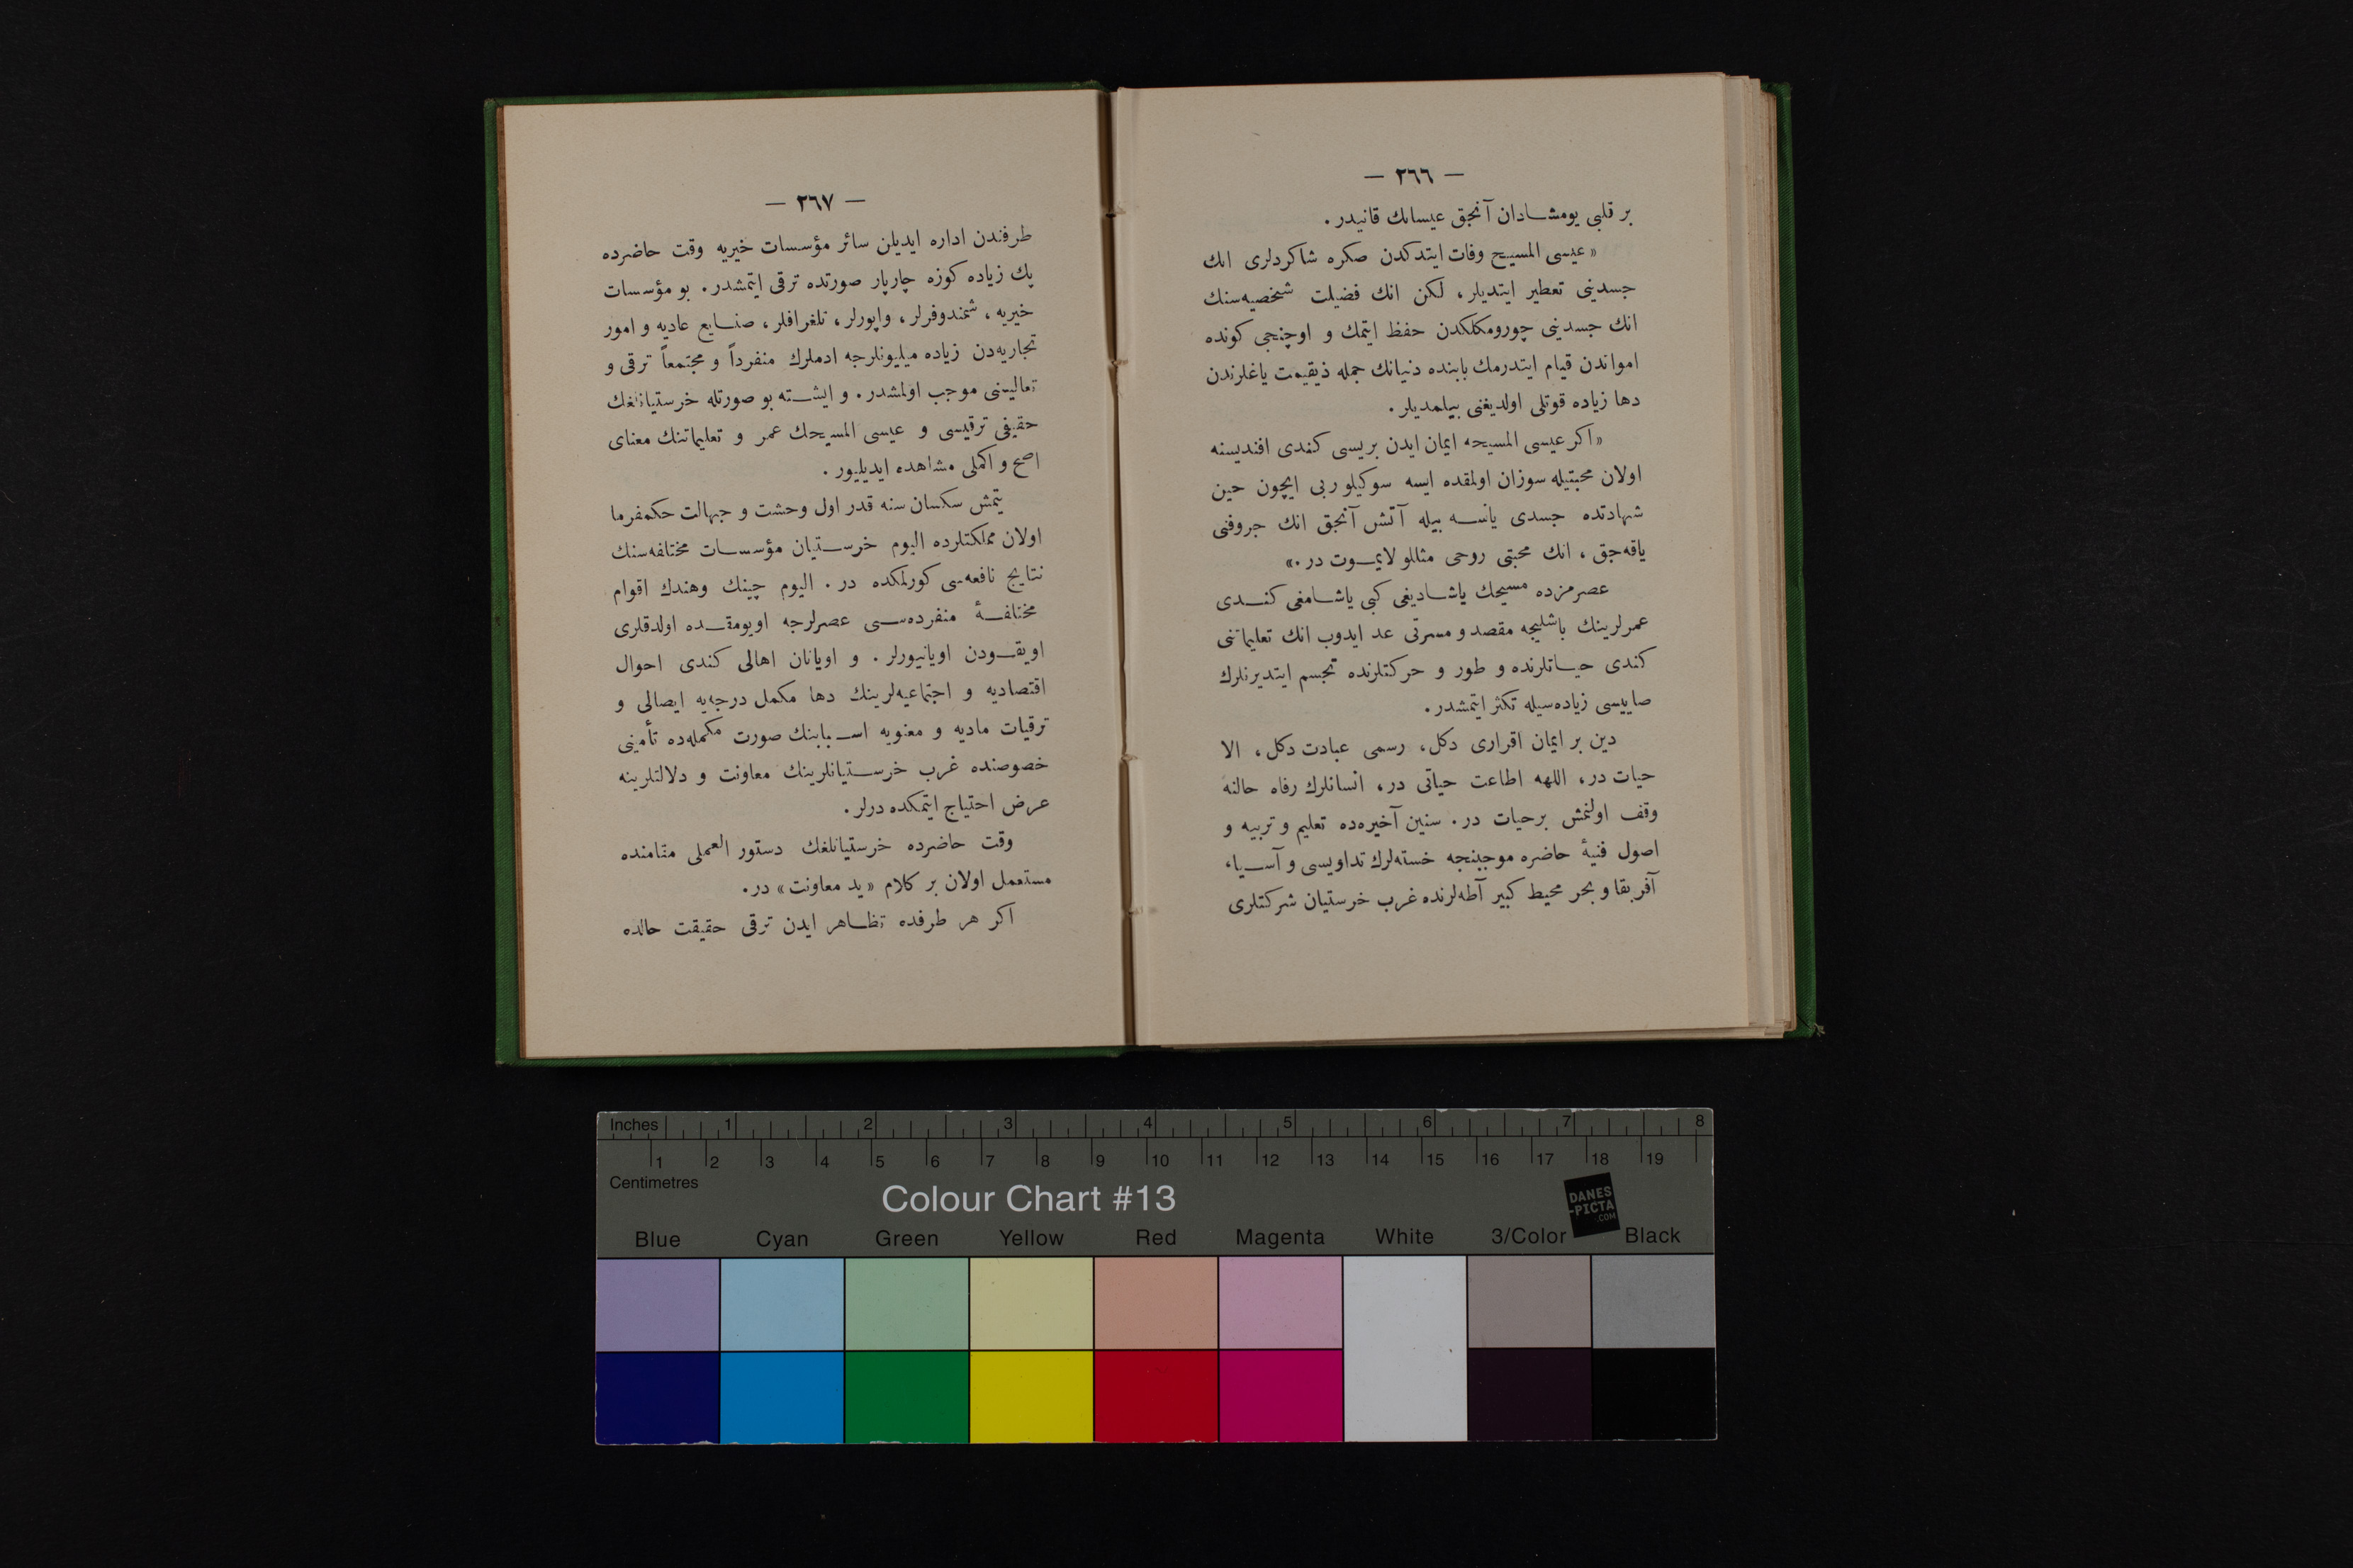 — ٢٦٦ —
بر قلبی یومشادان آنجق عیسانك قانیدر.
« عیسی المسیح وفات ایتدکدن صکره شاکردلری انك
جسدینی تعطیر ایتدیلر، لکن انك فضیلت شخصیه‌سنك
انك جسدینی چورومکلکدن حفظ ایتمك و اوچنجی کونده
امواتدن قیام ایتدرمك بابنده دنیانك جمله ذیقیمت یاغلرندن
دها زیاده قوتلی اولدیغنی بیلمدیلر.
« اکر عیسی المسیحه ایمان ایدن بریسی کندی افندیسنه
اولان محبتیله سوزان اولمقده ایسه سوکیلو ربی ایچون حین
شهادتده جسدی یانسه بیله آتش آنجق انك جروفنی
یاقه‌جق، انك محبتی روحی مثاللو لایموت در.»
عصرمزده مسیحك یاشادیغی کبی یاشامغی کندی
عمرلرینك باشلیجه مقصد و مسرتی عد ایدوب انك تعلیماتنی
کندی حیاتلرنده و طور و حرکتلرنده تجسم ایتدیرنلرك
صاییسی زیاده‌سیله تکثر ایتمشدر.
دین بر ایمان اقراری دکل، رسمی عبادت دکل، الا
حیات در، اللهه اطاعت حیاتی در، انسانلرك رفاه حالنه
وقف اولنمش برحیات در. سنین آخیره‌ده تعلیم و تربیه و
اصول فنیۀ حاضره موجبنجه خسته‌لرك تداویسی و آسیا،
آفریقا و بحر محیط کبیر آطه‌لرنده غرب خرستیان شرکتلری
— ٢٦٧ —
طرفندن اداره ایدیلن سائر مؤسسات خیریه وقت حاضرده
پك زیاده کوزه چارپار صورتده ترقی ایتمشدر. بو مؤسسات
خیریه، شمندوفرلر، واپورلر، تلغرافلر، صنایع عادیه و امور
تجاریه‌دن زیاده میلیونلرجه ادملرك منفرداً و مجتمعاً ترقی و
تعالیسنی موجب اولمشدر. و ایشته بو صورتله خرستیانلغك
حقیقی ترقیسی و عیسی المسیحك عمر و تعلیماتنك معنای
اصح و اکملی مشاهده ایدیلیور.
یتمش سکسان سنه قدر اول وحشت و جهالت حکمفرما
اولان مملکتلرده الیوم خرستیان مؤسسات مختلفه‌سنك
نتایج نافعه‌سی کورلمکده در. الیوم چینك وهندك اقوام
مختلفۀ منفرده‌سی عصرلرجه اویومقده اولدقلری
اویقودن اویانیورلر. و اویانان اهالی کندی احوال
اقتصادیه و اجتماعیه‌لرینك دها مکمل درجه‌یه ایصالی و
ترقیات مادیه و معنویه اسبابنك صورت مکمله‌ده تأمینی
خصوصنده غرب خرستیانلرینك معاونت و دلالتلرینه
عرض احتیاج ایتمکده درلر.
وقت حاضرده خرستیانلغك دستور العملی مقامنده
مستعمل اولان بر کلام «ید معاونت» در.
اکر هر طرفده تظاهر ایدن ترقی حقیقت حالده
Inches 1 2 3 4 5 6 7 8
1 2 3 4 5 6 7 8 9 10 11 12 13 14 15 16 17 18 19
Centimetres
Colour Chart #13
DANES
-PICTA
.COM
Blue Cyan Green Yellow Red Magenta White 3/Color Black